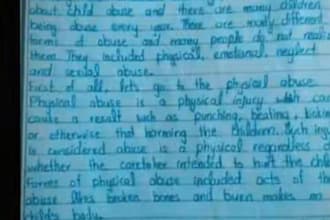 about child abuse and there are many children
being abuse every year. There are many different
forms of abuse and many people do not
them. They included physical, emotional, neglect
and sexual abuse.
First of all, lets go to the physical abuse.
Physical abuse is a physical injury with can
cause a result such as punching, beating,
or otherwise that harming the children. Such
is considered abuse is a physical regardless
whether the caretaker intended to hurt the child
forms of physical abuse included acts of
abuse likes broken bones and burn makes
child's body.